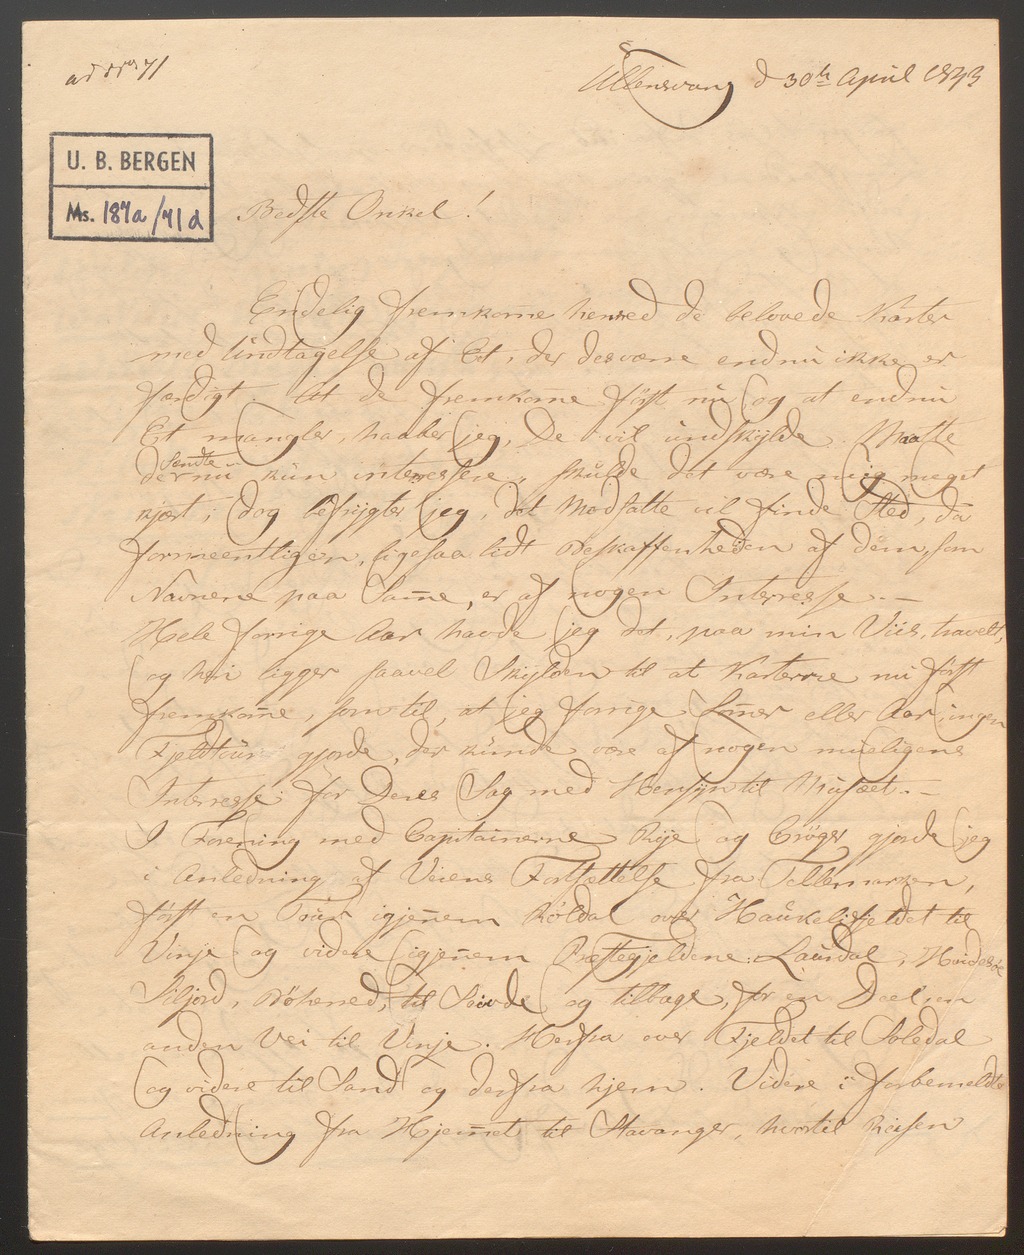 ad No 71
Ullensvang d 30te April 1843
U. B. BERGEN
Ms. 187a/71d
Bedste Onkel!
Endelig fremkomme herved de belovede Karter
med Undtagelse af Et, der desværre endnu ikke er
færdigt. At de fremkomme først nu og at endnu
Et mangler, haaber jeg, De vil undskylde. Maatte
Sendte
der nu kun interessere, skulde det være mig meget
kjært; dog befrygter jeg, det Modsatte vil finde Sted, da
formeentligen, ligesaa lidt Beskaffenheden af dem, som
Navnene paa Samme, er af nogen Interesse. —
Hele forrige Aar havde jeg det, paa min Viis, travelt,
og heri ligger saavel Skylden til at Karterne nu først
fremkomme, som til, at jeg forrige Sommer eller Aar, ingen
Fjeldtour gjorde, der kunde være af nogen mueligens
Interesse for Deres Sag med Hensyn til Musæet. —
I Forening med Capitainerne Rije og Crøger gjorde jeg
i Anledning af Veiens Fortsættelse fra Tellemarken,
først en Tour igjennem Røldal over Haukelifjeldet til
Vinje og videre igjennem Præstegjeldene: Laurdal, Hvidesøe
Siljord, Bøherred, til Skien og tilbage, for en Deel en
anden Vei til Vinje. Herfra over Fjeldet til Suledal
og videre til Sand og derfra hjem. Videre i forbemeldte
Anledning fra Hjemmet til Stavanger, hvortil Reisen